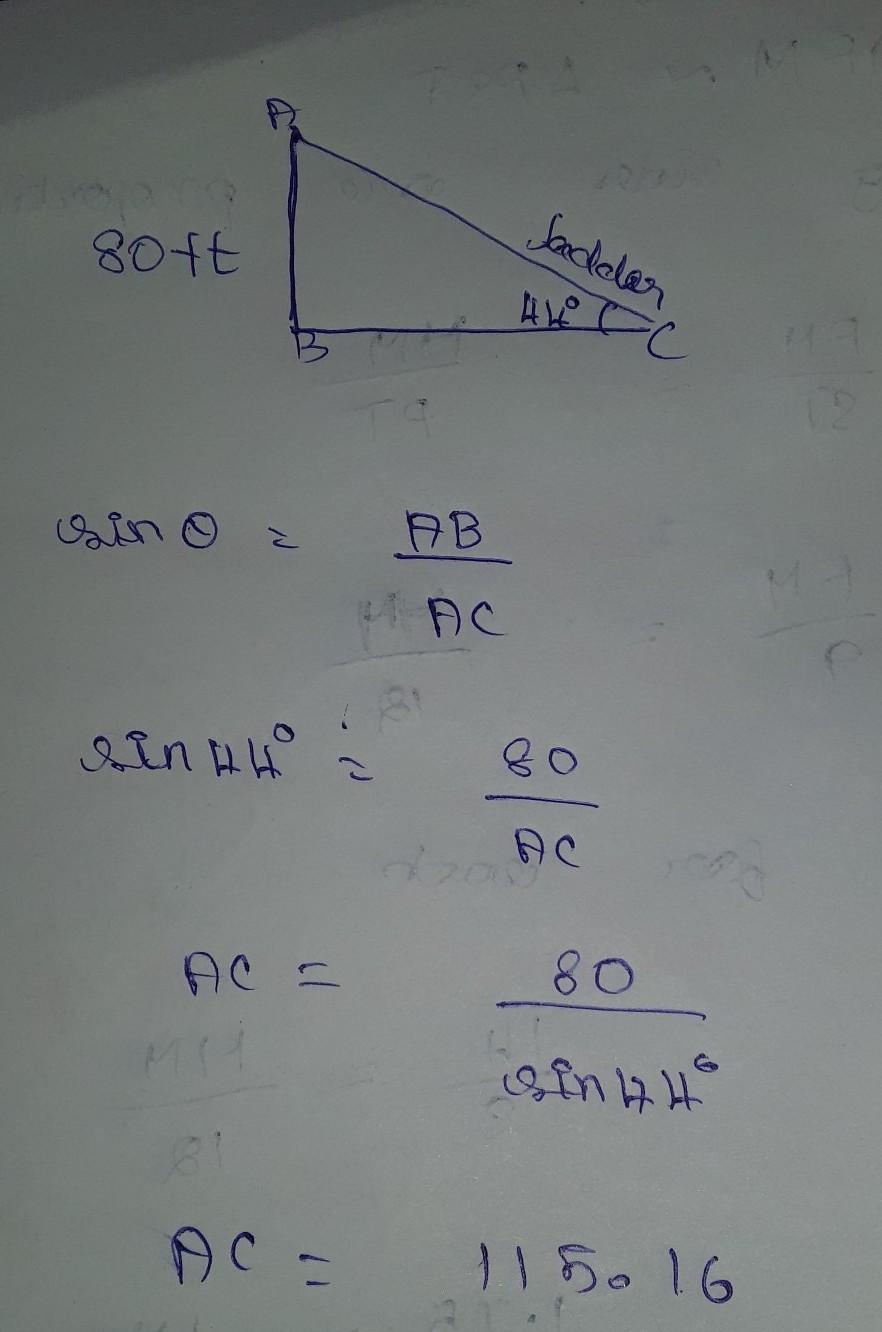 A
80ft
ladder
44°
B
C
sin θ = AB
AC
sin 44° = 80
AC
AC = 80
sin 44°
AC = 115.16